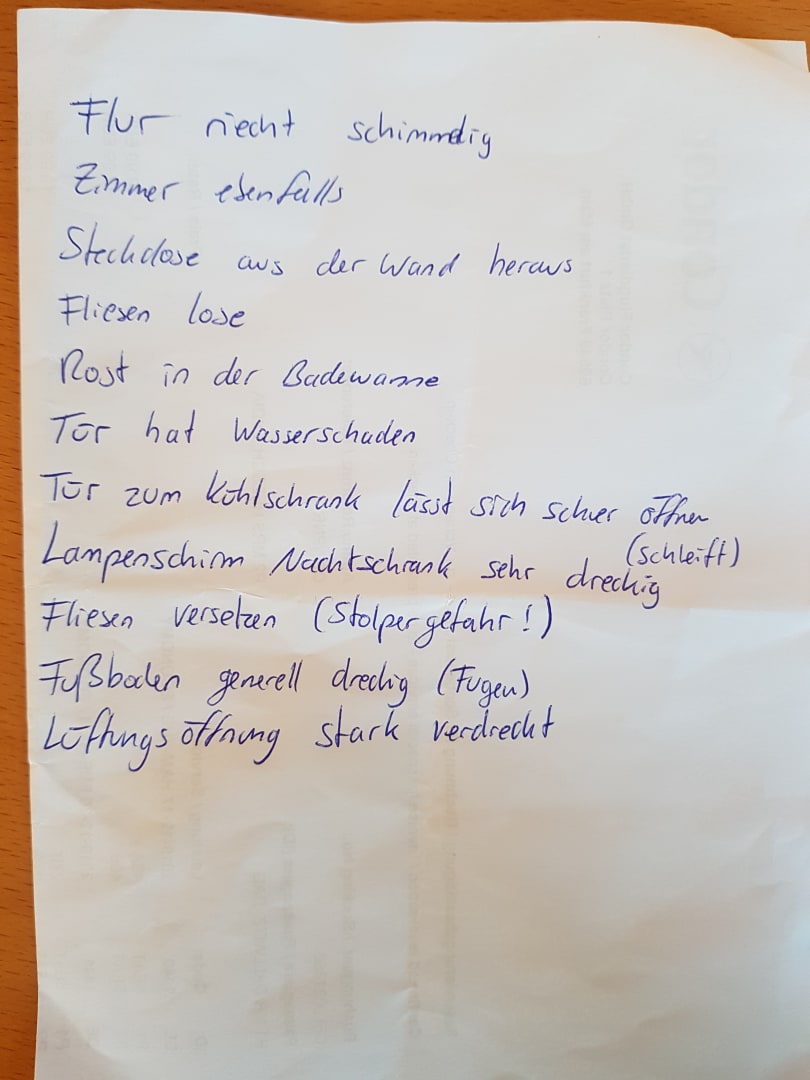 Flur riecht schimmelig
Zimmer ebenfalls
Steckdose aus der Wand heraus
Fliesen lose
Rost in der Badewanne
Tür hat Wasserschaden
Tür zum Kühlschrank lässt sich schwer öffnen
(schleift)
Lampenschirm Nachtschrank sehr dreckig
Fliesen versetzen (Stolpergefahr!)
Fußboden generell dreckig (Fugen)
Lüftungsöffnung stark verdreckt
Condor